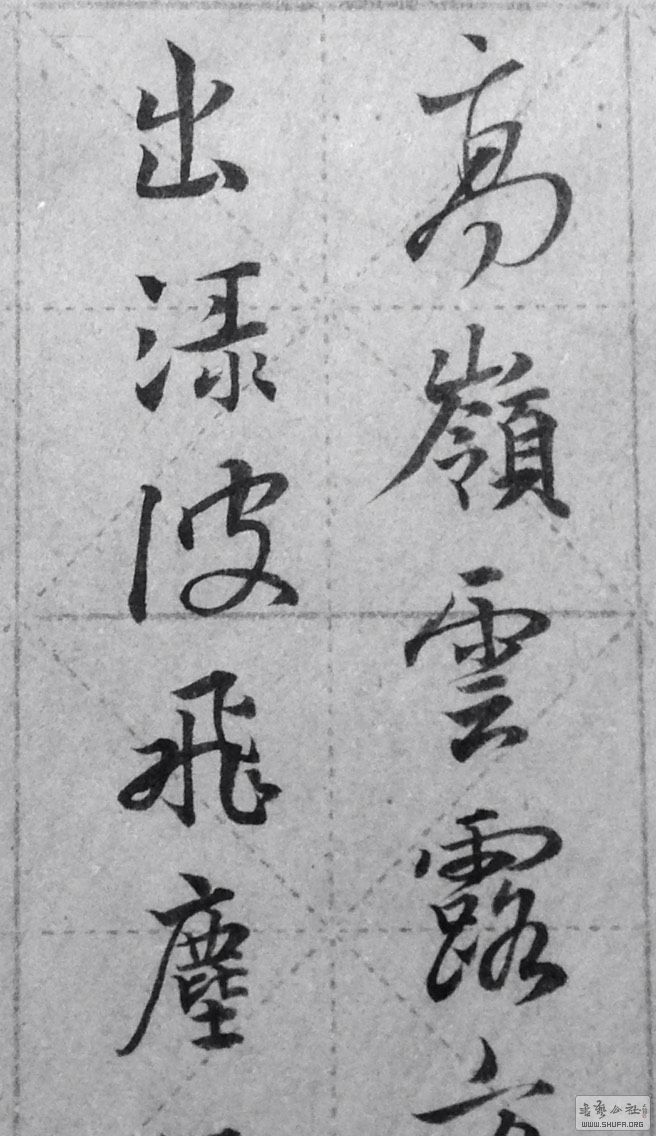 高嶺雲露
出淥波飛塵
書藝公社
WWW.SHUFA.ORG